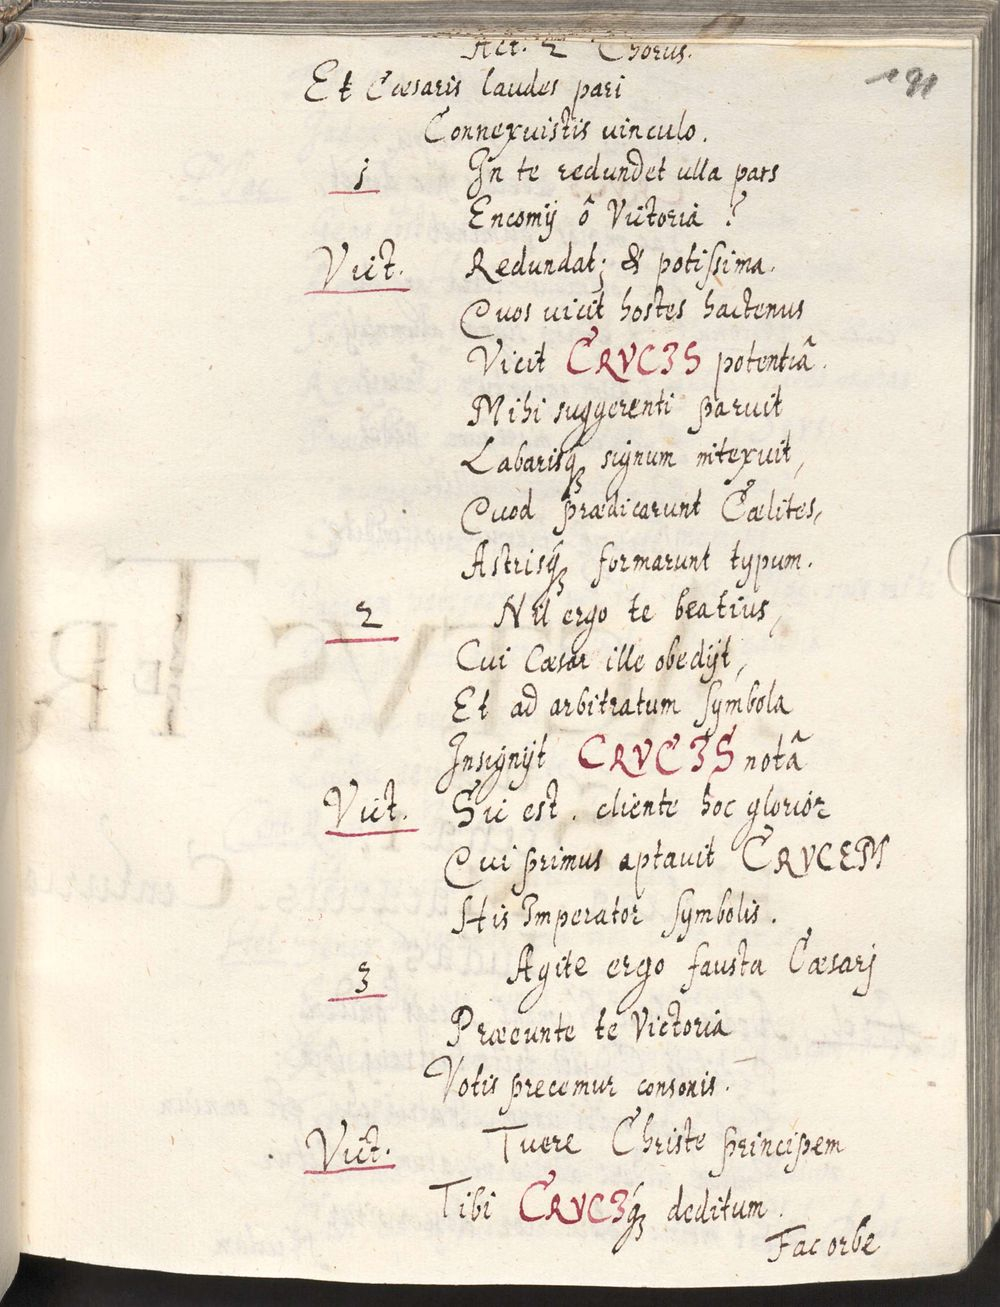 Act. 2 Chorus.
191
Et Cæsaris laudes pari
Connexuistis uinculo.
1 In te redundet ulla pars
Encomij ô Victoria?
Vict. Redundat; & potissima.
Quos uicit hostes hactenus
Vicit CRVCIS potentiâ.
Mihi suggerenti paruit
Labarisq; signum intexuit,
Quod prædicarunt Cælites,
Astrisq; formarunt typum.
2 Nil ergo te beatius,
Cui Cæsar ille obedijt,
Et ad arbitratum symbola
Insignijt CRVCIS notâ
Vict. Sic est. cliente hoc glorior
Qui primus aptauit CRVCEM
His Imperator symbolis.
3 Agite ergo fausta Cæsarj
Præeunte te Victoria
Votis precemur consonis.
Vict. Tuere Christe principem
Tibi CRVCIq; deditum.
Fac orbe